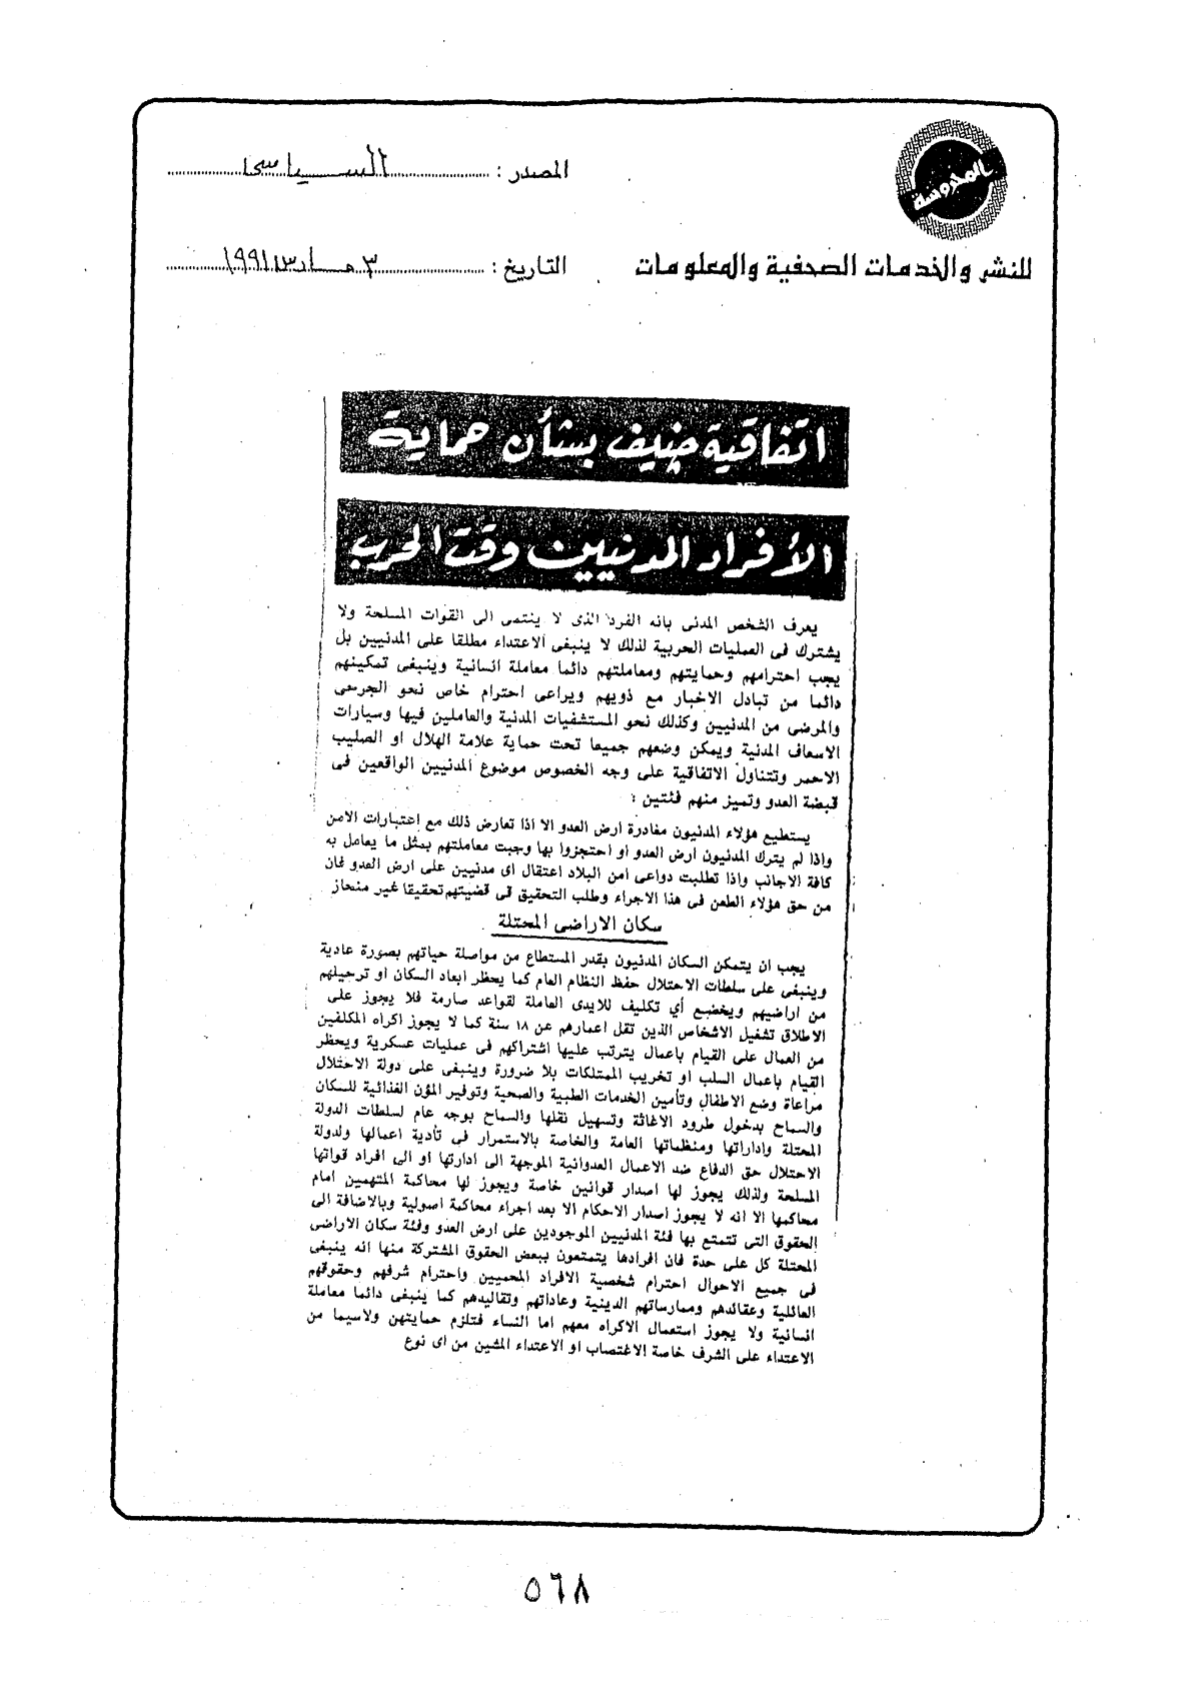 المحروسة
المصدر : السياسى
للنشر والخدمات الصحفية والمعلومات
التاريخ : ٣ مارس ١٩٩١
اتفاقية جنيف بشأن حماية
الأفراد المدنيين وقت الحرب
يعرف الشخص المدنى بانه الفرد الذى لا ينتمى الى القوات المسلحة ولا
يشترك فى العمليات الحربية لذلك لا ينبغى الاعتداء مطلقا على المدنيين بل
يجب احترامهم وحمايتهم ومعاملتهم دائما معاملة انسانية وينبغى تمكينهم
دائما من تبادل الاخبار مع ذويهم ويراعى احترام خاص نحو الجرحى
والمرضى من المدنيين وكذلك نحو المستشفيات المدنية والعاملين فيها وسيارات
الاسعاف المدنية ويمكن وضعهم جميعا تحت حماية علامة الهلال او الصليب
الاحمر وتتناول الاتفاقية على وجه الخصوص موضوع المدنيين الواقعين فى
قبضة العدو وتميز منهم فئتين :
يستطيع هؤلاء المدنيون مغادرة ارض العدو الا اذا تعارض ذلك مع اعتبارات الامن
واذا لم يترك المدنيون ارض العدو او احتجزوا بها وجبت معاملتهم بمثل ما يعامل به
كافة الاجانب واذا تطلبت دواعى امن البلاد اعتقال اى مدنيين على ارض العدو فان
من حق هؤلاء الطعن فى هذا الاجراء وطلب التحقيق فى قضيتهم تحقيقا غير منحاز
سكان الاراضى المحتلة
يجب ان يتمكن السكان المدنيون بقدر المستطاع من مواصلة حياتهم بصورة عادية
وينبغى على سلطات الاحتلال حفظ النظام العام كما يحظر ابعاد السكان او ترحيلهم
من اراضيهم ويخضع أي تكليف للايدى العاملة لقواعد صارمة فلا يجوز على
الاطلاق تشغيل الاشخاص الذين تقل اعمارهم عن ١٨ سنة كما لا يجوز اكراه المكلفين
من العمال على القيام باعمال يترتب عليها اشتراكهم فى عمليات عسكرية ويحظر
القيام باعمال السلب او تخريب الممتلكات بلا ضرورة وينبغى على دولة الاحتلال
مراعاة وضع الاطفال وتأمين الخدمات الطبية والصحية وتوفير المؤن الغذائية للسكان
والسماح بدخول طرود الاغاثة وتسهيل نقلها والسماح بوجه عام لسلطات الدولة
المحتلة واداراتها ومنظماتها العامة والخاصة بالاستمرار فى تأدية اعمالها ولدولة
الاحتلال حق الدفاع ضد الاعمال العدوانية الموجهة الى ادارتها او الى افراد قواتها
المسلحة ولذلك يجوز لها اصدار قوانين خاصة ويجوز لها محاكمة المتهمين امام
محاكمها الا انه لا يجوز اصدار الاحكام الا بعد اجراء محاكمة اصولية وبالاضافة الى
الحقوق التى تتمتع بها فئة المدنيين الموجودين على ارض العدو وفئة سكان الاراضى
المحتلة كل على حدة فان افرادها يتمتعون ببعض الحقوق المشتركة منها انه ينبغى
فى جميع الاحوال احترام شخصية الافراد المحميين واحترام شرفهم وحقوقهم
العائلية وعقائدهم وممارساتهم الدينية وعاداتهم وتقاليدهم كما ينبغى دائما معاملة
انسانية ولا يجوز استعمال الاكراه معهم اما النساء فتلزم حمايتهن ولاسيما من
الاعتداء على الشرف خاصة الاغتصاب او الاعتداء المشين من اى نوع
٥٦٨